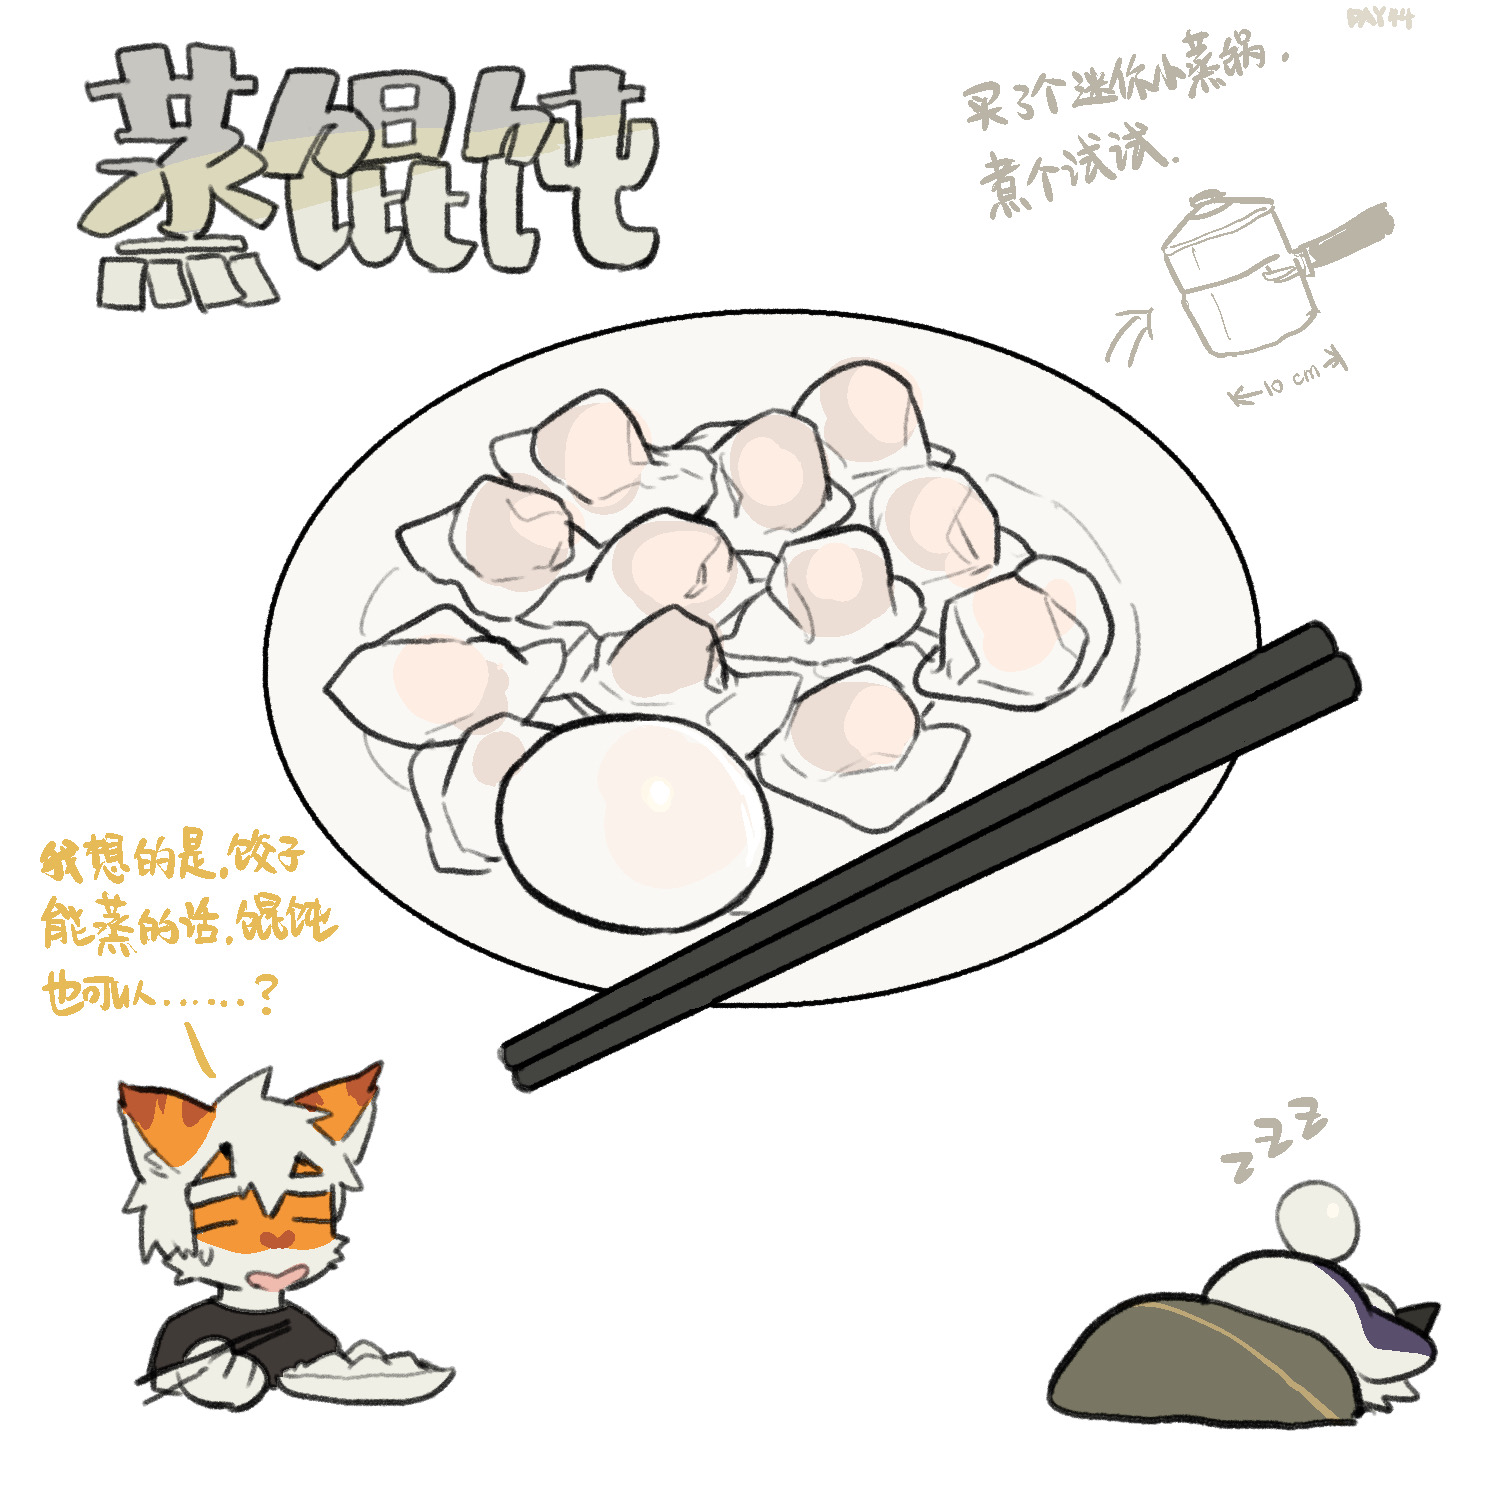 DAY44
蒸馄饨
买了个迷你小蒸锅.
煮个试试.
10 cm
我想的是.饺子
能蒸的话.馄饨
也可以......?
zzz